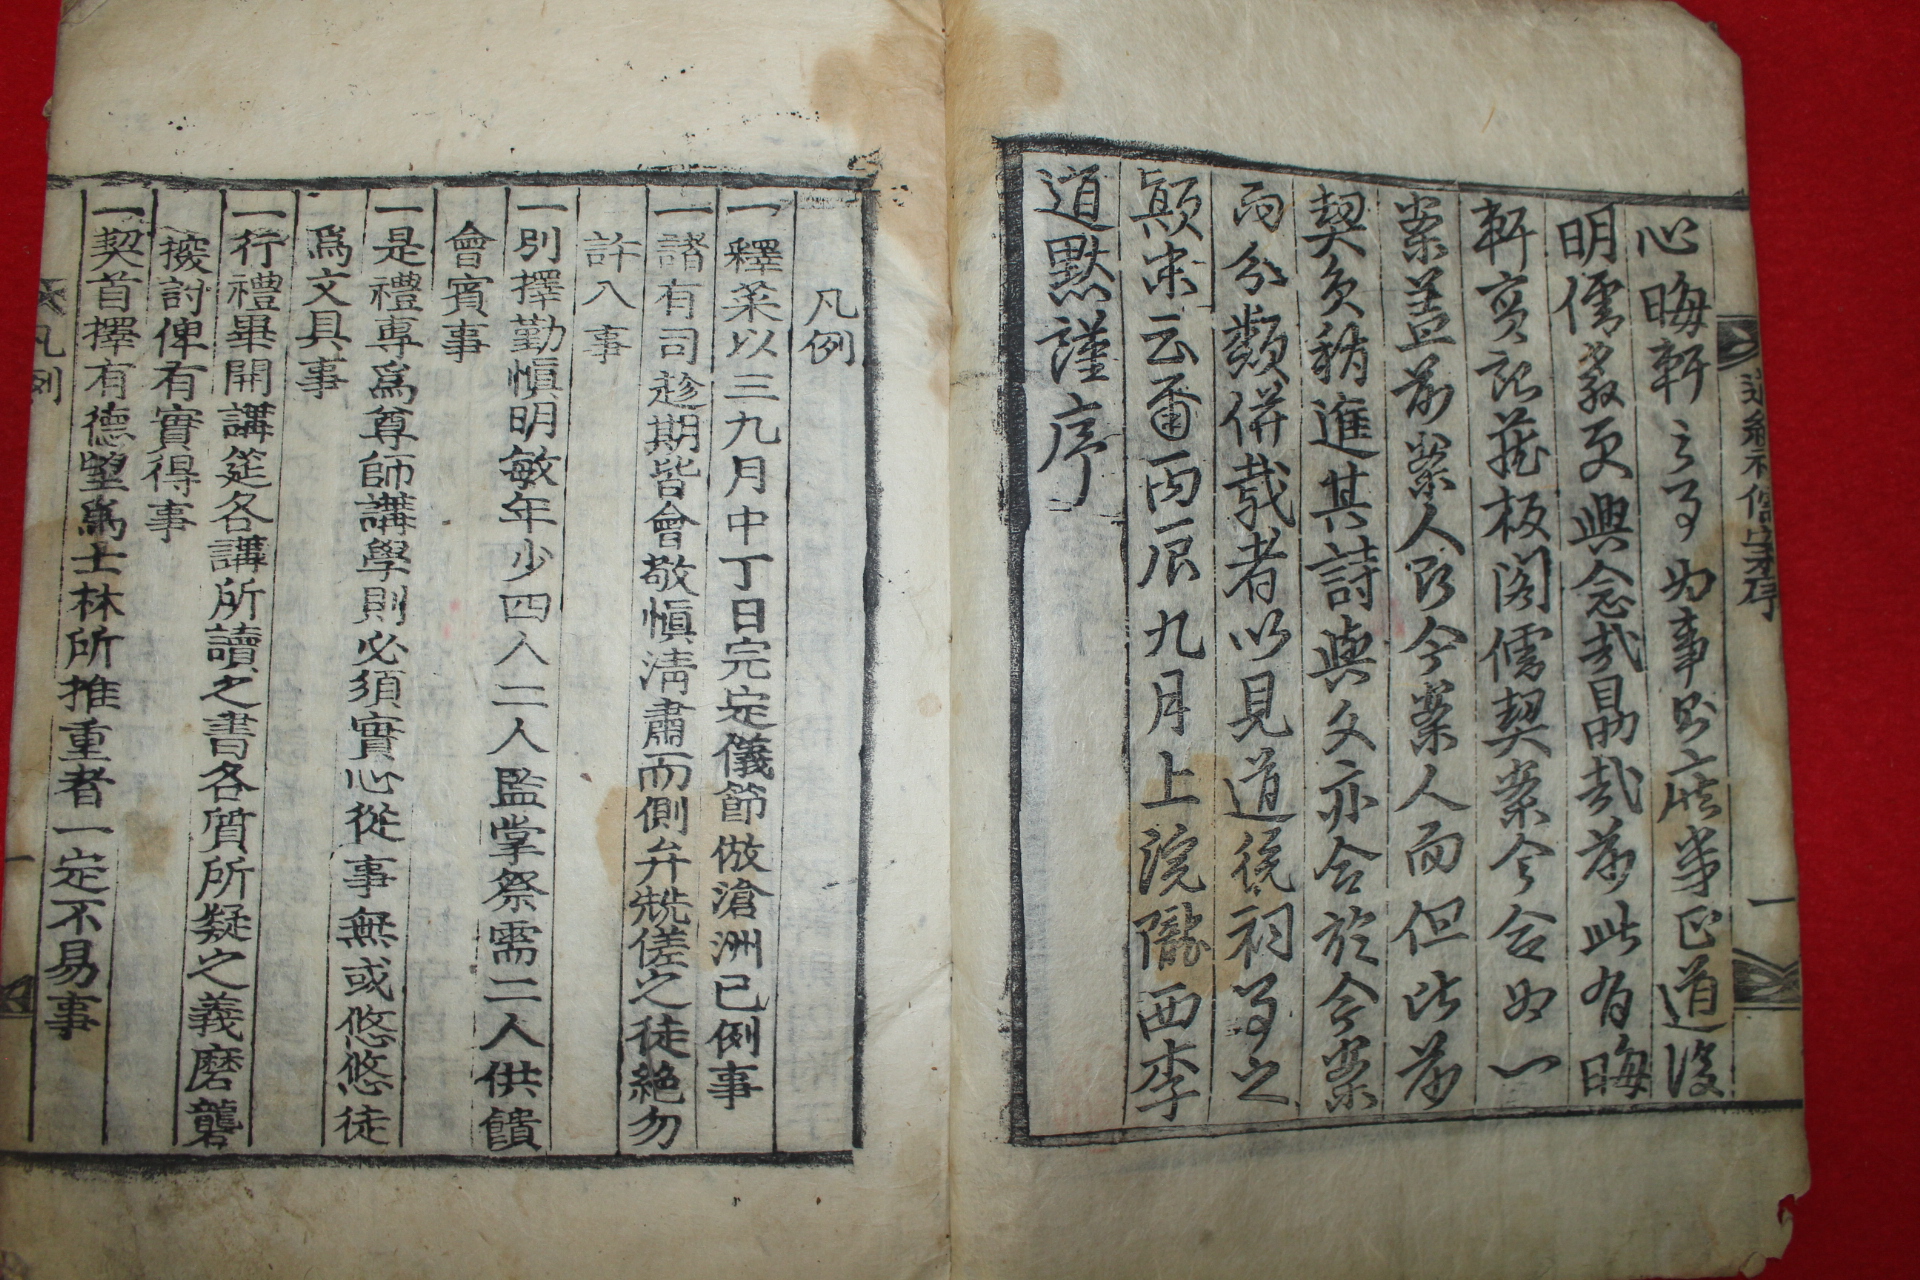 心晦軒之為事則庶幾乎道後
明儒家更興念哉勗哉前此有晦
軒實記藏板閣儒契案今合如一
案蓋前案人即今案人而但此前
契員稍進其詩與文亦合於今案
而分類併載者以見道後祠之
顚末云爾丙辰九月上浣隴西李
道默謹序
凡例
一釋菜以三九月中丁日完定儀節倣滄洲已例事
一諸有司趁期皆會敬愼淸肅而側弁兟傞之徒絶勿
許入事
一別擇勤愼明敏年少四人二人監掌祭需二人供饋
會賓事
一是禮專爲尊師講學則必須實心從事無或悠悠徒
爲文具事
一行禮畢開講筵各講所讀之書各質所疑之義磨礱
按討俾有實得事
一契首擇有德望爲士林所推重者一定不易事
凡例
一